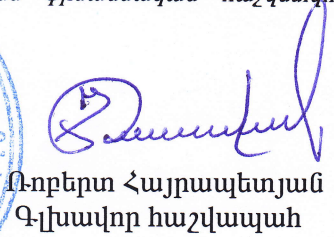 Ռոբերտ Հայրապետյան
Գլխավոր հաշվապահ